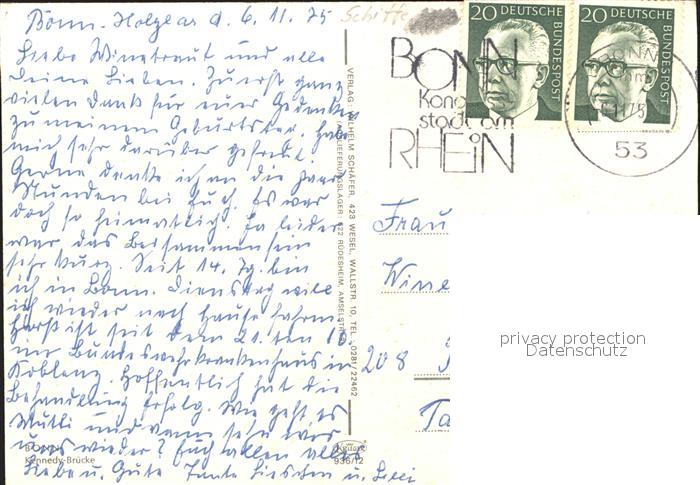 Bonn-Holzlar d. 6.11.75
Schiffe
Liebe Winetraut und alle
Deine Lieben. Zuerst ganz
vielen Dank für euer Gedenken
zu meinem Geburtstag. Habe
mich sehr darüber gefreut.
Gerne denke ich an die paar
Stunden bei Euch. Es war
doch so heimatlich. Ja leider
war das Beisammensein
sehr kurz. Seit 14. Tg. bin
ich in Bonn. Dienstag will
ich wieder nach Hause fahren.
Horst ist seit dem 21. ten
im Bundeswehrkrankenhaus in
Koblenz. Hoffentlich hat die
Behandlung Erfolg. Wie geht es
Mutti und wann sehn wir
uns wieder? Euch allen alles
Liebe u. Gute Tante Lieschen u.
BONN
Kennedy-Brücke
VERLAG: WILHELM SCHÄFER, 423 WESEL, WALLSTR. 10, TEL. 0281/22462
AUSLIEFERUNGSLAGER: 622 RÜDESHEIM, AMSELSTR.
Krüger
936/12
20 DEUTSCHE BUNDESPOST
20 DEUTSCHE BUNDESPOST
BONN
Kong
stadt am
RHEiN
BONN
11.75
53
Frau
Wine
208
Ta
privacy protection
Datenschutz